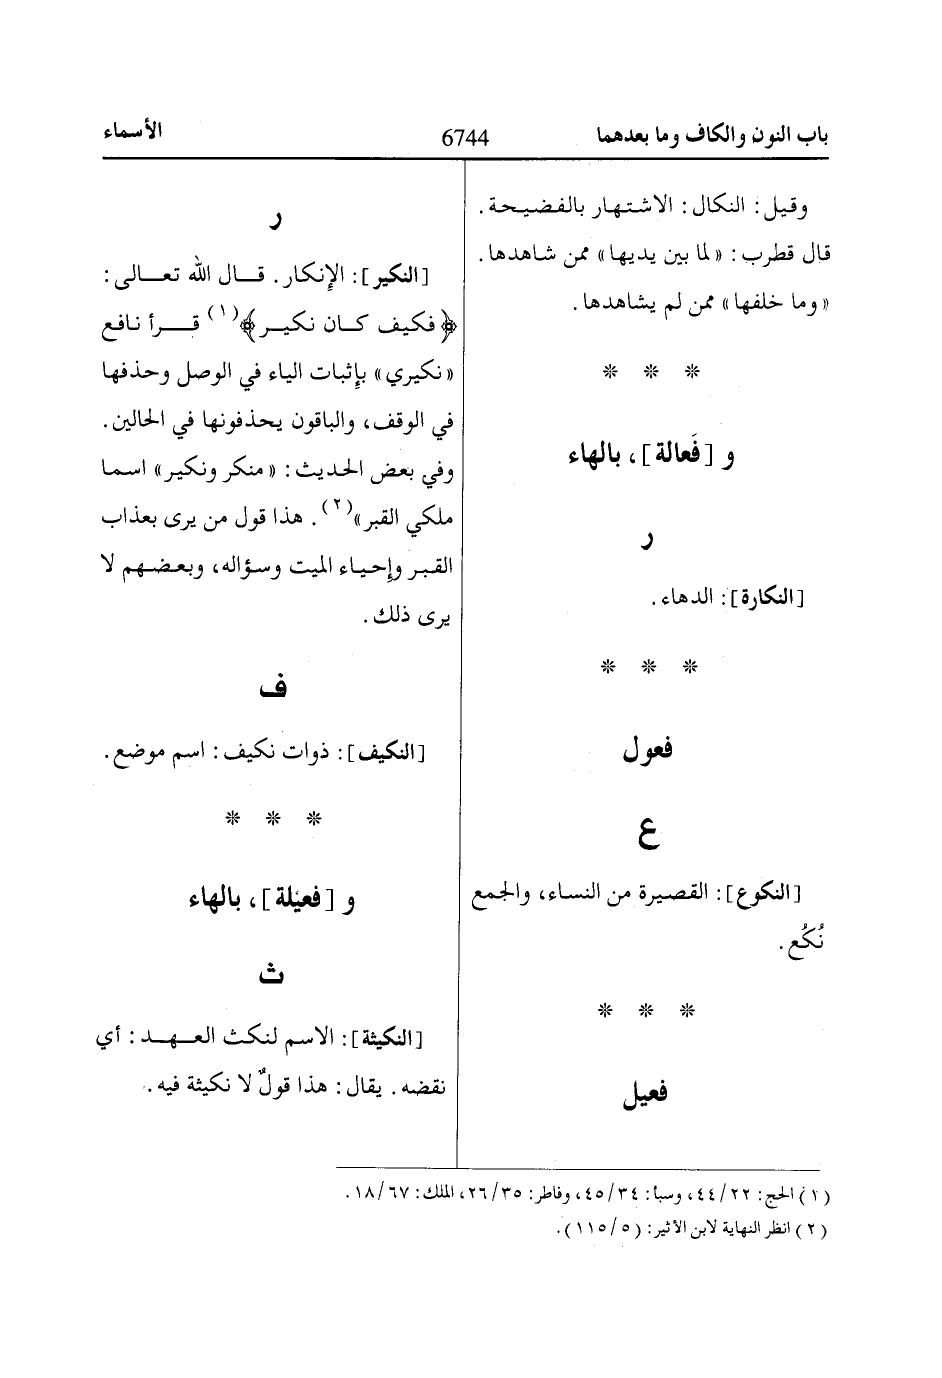 باب النون والكاف وما بعدهما 6744 الأسماء
وقيل: النكال: الاشتهار بالفضيحة.
قال قطرب: «لما بين يديها» ممن شاهدها.
«وما خلفها» ممن لم يشاهدها.
* * *
و [فَعالة]، بالهاء
ر
[النكارة]: الدهاء.
* * *
فعول
ع
[النكوع]: القصيرة من النساء، والجمع
نُكُع.
* * *
فعيل
ر
[النكير]: الإنكار. قال الله تعالى:
﴿فكيف كان نكير﴾(١) قرأ نافع
«نكيري» بإثبات الياء في الوصل وحذفها
في الوقف، والباقون يحذفونها في الحالين.
وفي بعض الحديث: «منكر ونكير» اسما
ملكي القبر»(٢). هذا قول من يرى بعذاب
القبر وإحياء الميت وسؤاله، وبعضهم لا
يرى ذلك.
ف
[النكيف]: ذوات نكيف: اسم موضع.
* * *
و [فعيلة]، بالهاء
ث
[النكيثة]: الاسم لنكث العهد: أي
نقضه. يقال: هذا قولٌ لا نكيثة فيه.
(١) الحج: ٤٤/٢٢، وسبأ: ٤٥/٣٤، وفاطر: ٢٦/٣٥، الملك: ١٨/٦٧.
(٢) انظر النهاية لابن الأثير: (١١٥/٥).